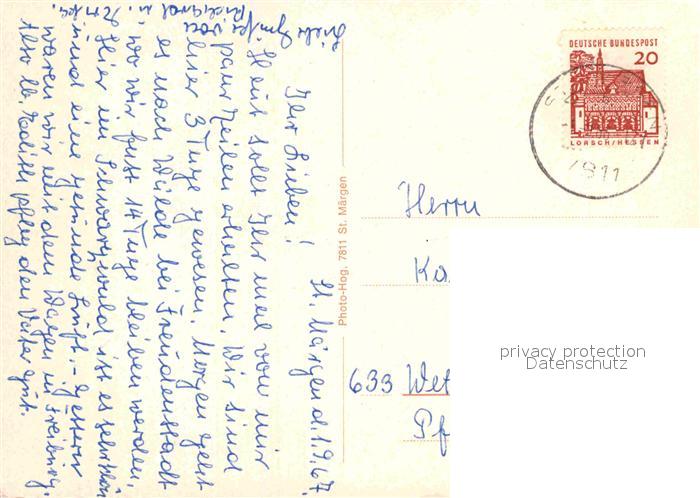 St. Märgen d. 1.9.67.
Ihr Lieben!
Heut sollt Ihr mal von mir
paar Zeilen erhalten. Wir sind
hier 3 Tage gewesen. Morgen geht
es nach Wälde bei Freudenstadt
wo wir fast 14 Tage bleiben werden.
Hier im Schwarzwald ist es sehr schön
und eine gesunde Luft. - Gestern
waren wir mit dem Wagen in Freiburg.
Also lb. Edith pfleg den Vater gut.
Viele Grüße von
Richard u.
Photo-Hog, 7811 St. Märgen
DEUTSCHE BUNDESPOST
20
LORSCH/HESSEN
7811
Herrn
Ka
633 Wet
Pf
privacy protection
Datenschutz